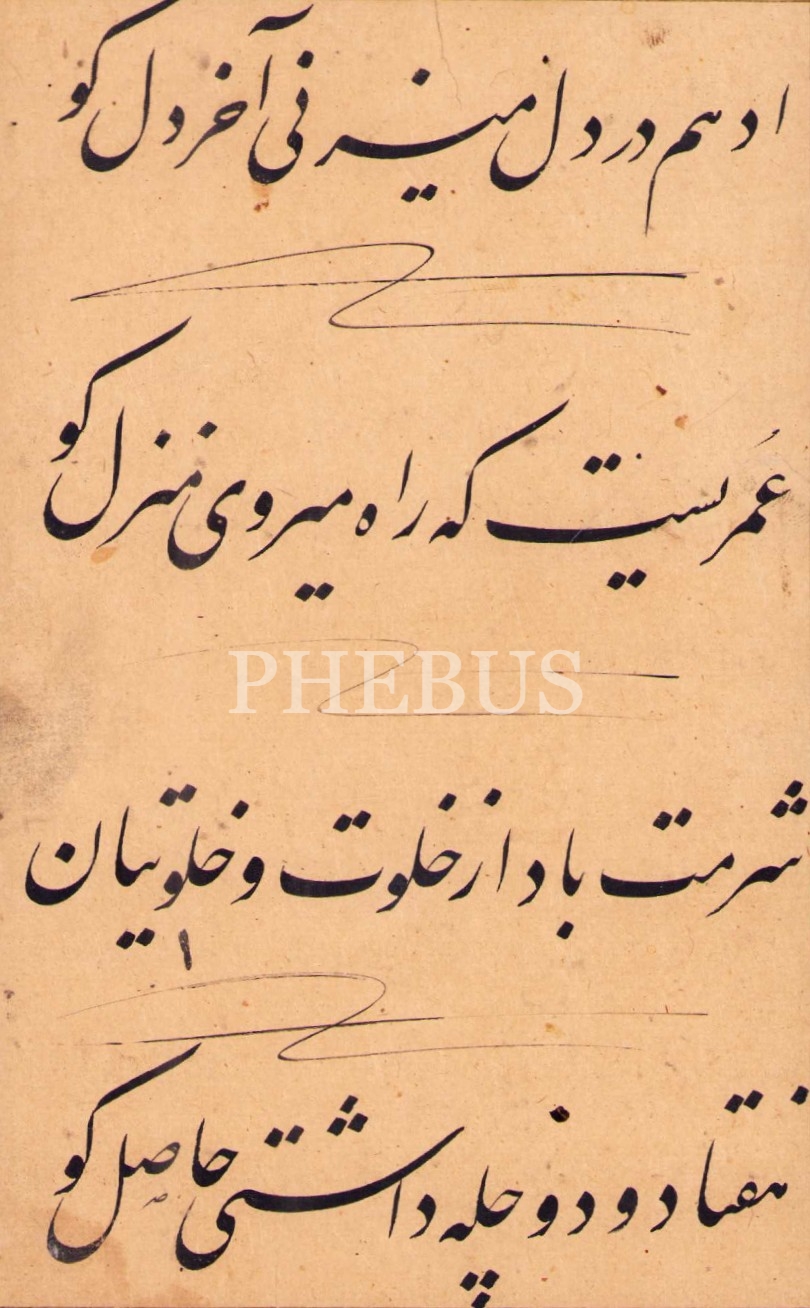 ادهم در دل میزنی آخر دل کو
عمریست که راه میروی منزل کو
PHEBUS
شرمت بادا ز خلوت و خلوتیان
۱
هفتاد و دو چله داشتی حاصل کو